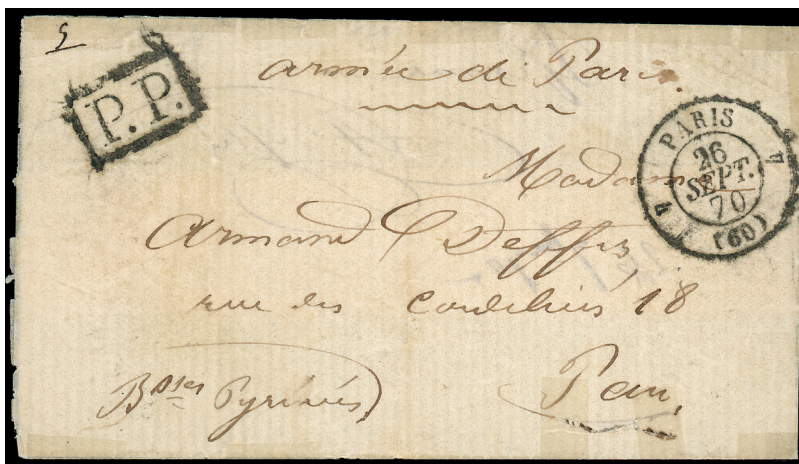 5
P.P.
armée de Paris.
PARIS 4
26
SEPT.
70
(60)
Madame
Armand Deffis,
rue des Cordeliers 18
Pau,
Bsses Pyrénées